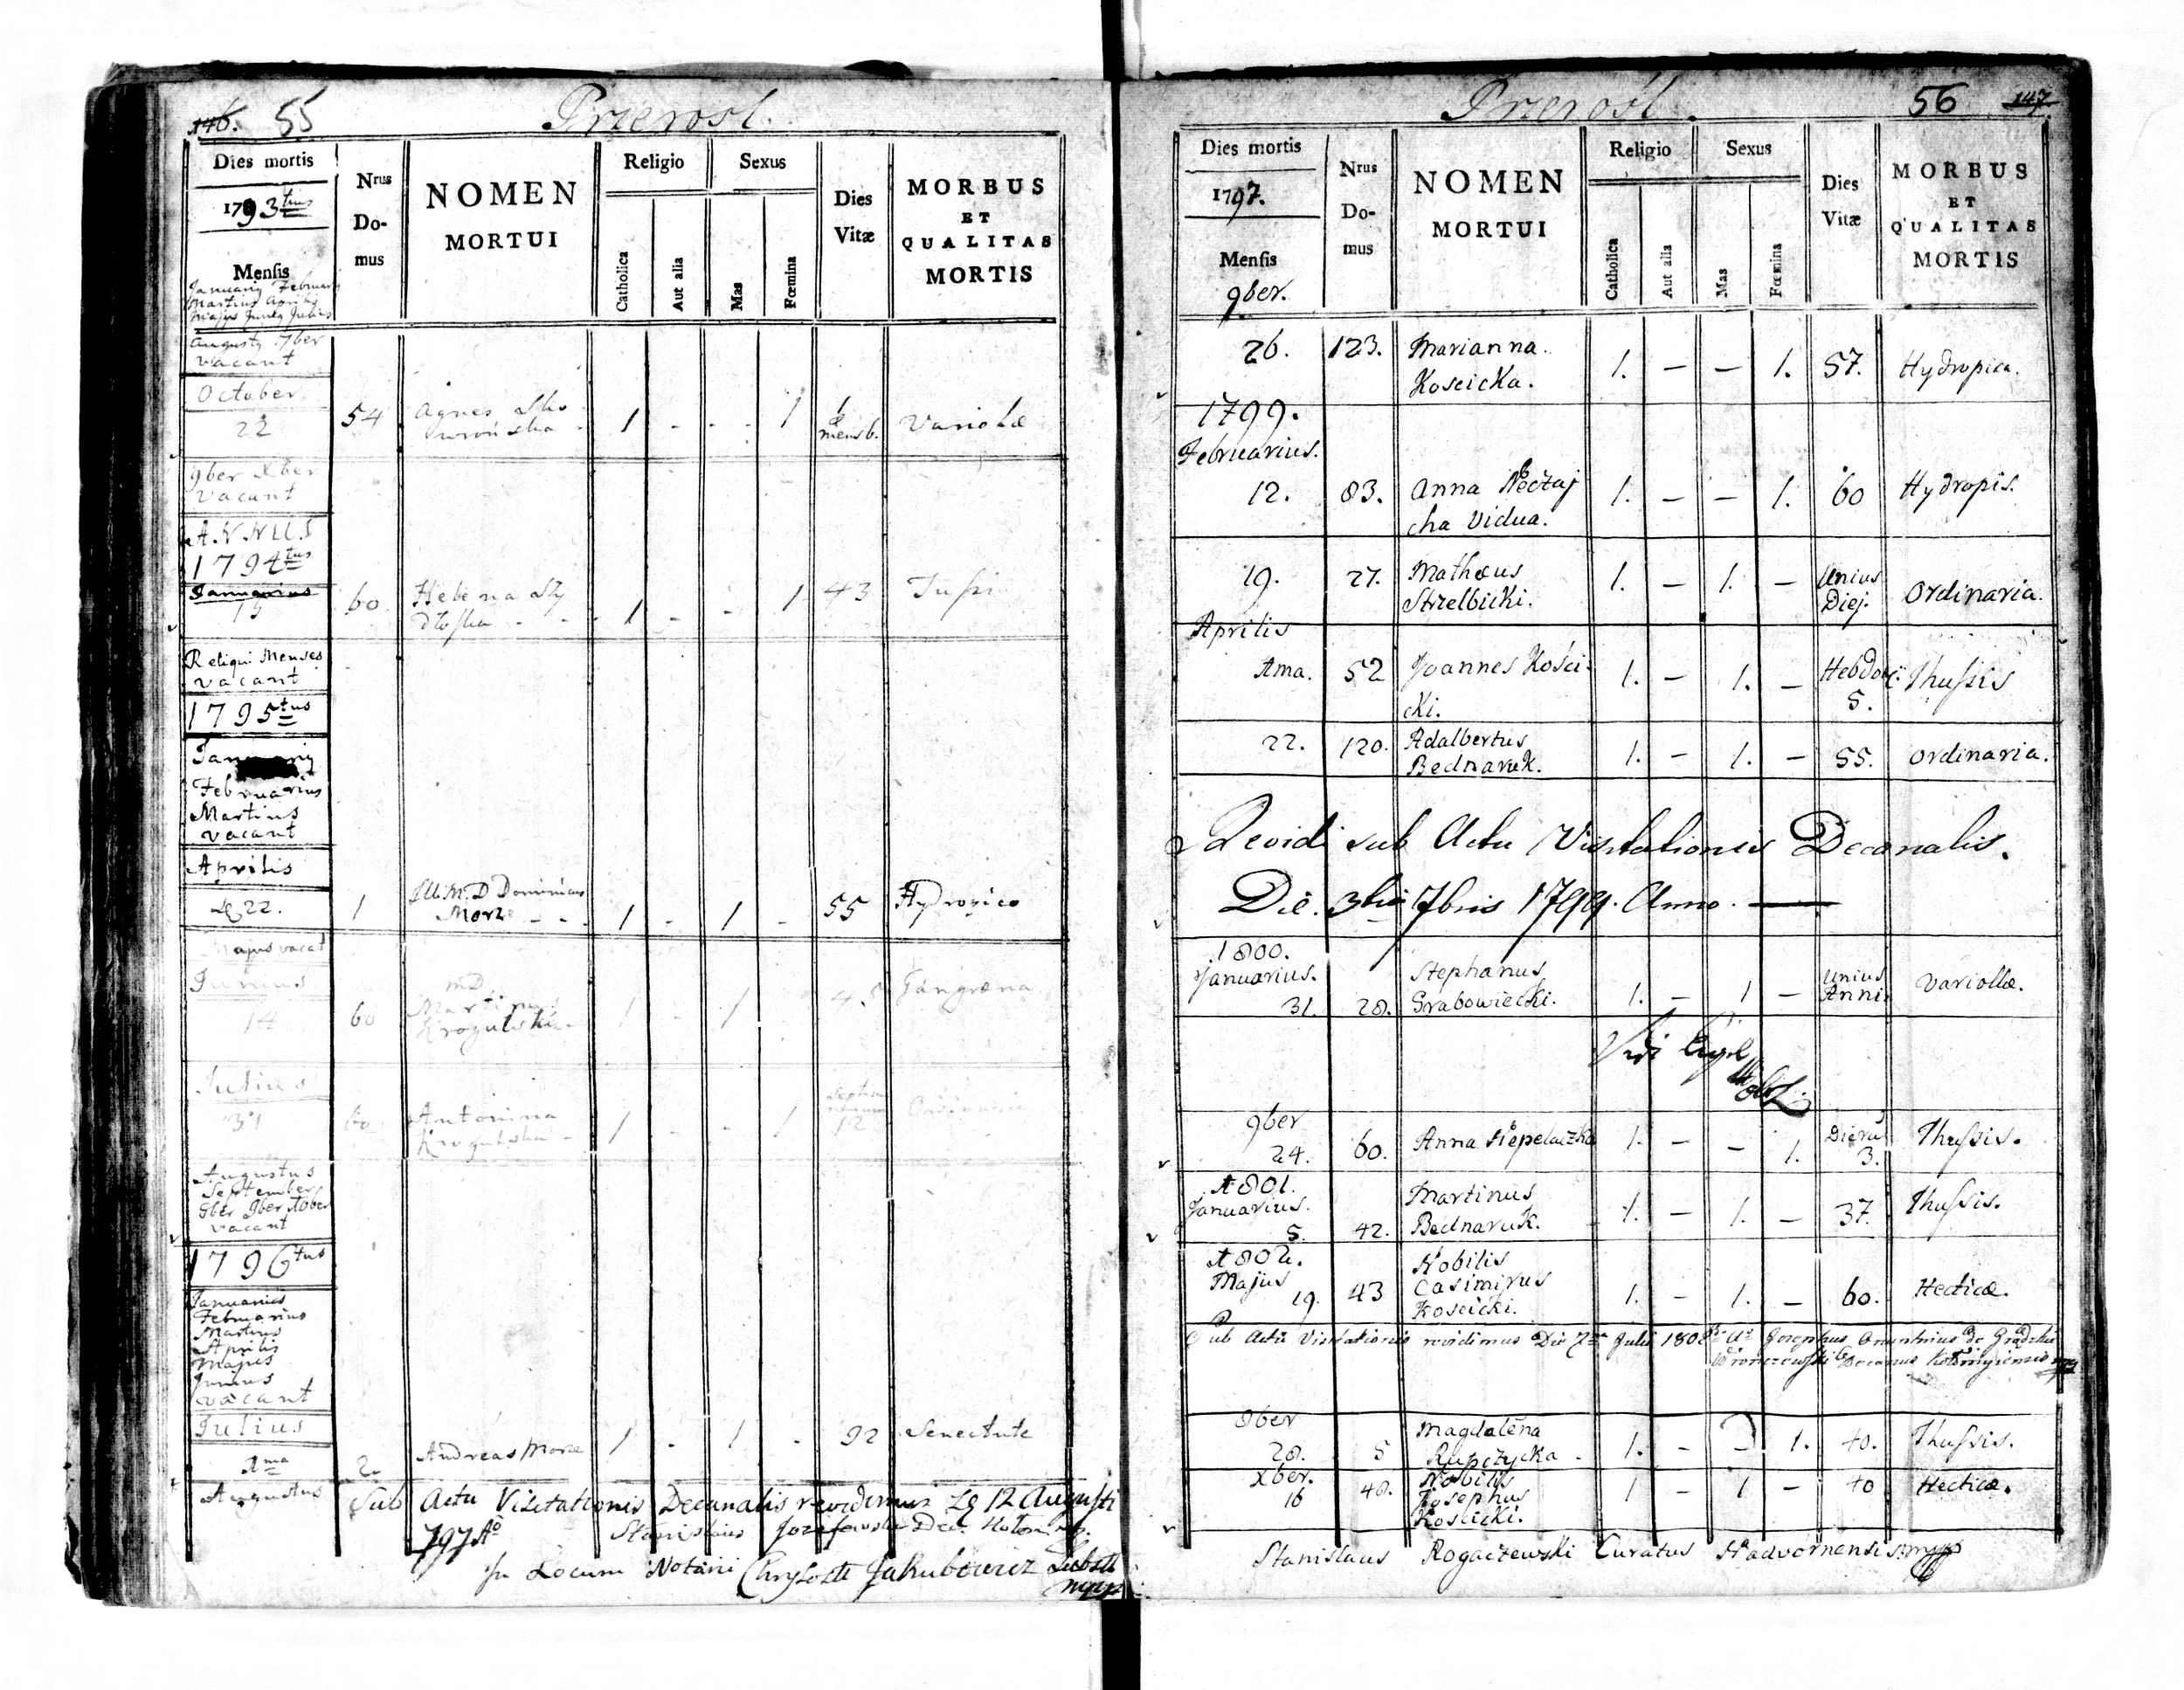 146. 55 Przerosl.
Dies mortis
1793tius
Mensis
Nrus
Do-
mus
NOMEN
MORTUI
Religio
Catholica
Aut alia
Sexus
Mas
Fœmina
Dies
Vitæ
MORBUS
ET
QUALITAS
MORTIS
Martius Aprilis
Majus Junius Julius
7ber
vacant
October
22 54 Agnes 1 - - 1 Variolæ
9ber Xber
vacant
ANNUS
1794tus
Januarius
15 60 Helena 1 - - 1 43 Tussi
Reliqui Menses
vacant
1795tus
Januarij
Februarius
Martius
vacant
Aprilis
22. 1 D Dominicus
Morze - - 1 - 1 - 55 Hydropico
Majus vacat
Junius
14 60 Martinus
Krogulski - 1 - 1 Gangræna
Julius
31 60 Antonina
Krogulska - 1 - - 1 12
Augustus
September
8ber 9ber Xober
vacant
1796tus
Januarius
Februarius
Martius
Aprilis
Majus
Junius
vacant
Julius
Ama 2 Andreas Morze 1 - 1 - 92 Senectute
Augustus Sub Actu Visitationis Decanalis revidimus 12 Augusti
797 Aõ Stanislaus
In Locum Notarii Jakubowicz
Przerosl. 56 147.
Dies mortis
1797.
Mensis
9ber.
Nrus
Do-
mus
NOMEN
MORTUI
Religio
Catholica
Aut alia
Sexus
Mas
Fœmina
Dies
Vitæ
MORBUS
ET
QUALITAS
MORTIS
26. 123. Marianna
Koscicka. 1. - - 1. 57. Hydropica.
1799.
Februarius.
12. 83. Anna Neczaj
cha Vidua. 1. - - 1. 60 Hydropis.
19. 27. Mathæus
Strzelbicki. 1. - 1. - Unius
Diej. Ordinaria.
Aprilis
Ama. 52 Joannes Kosci-
cki. 1. - 1. - 5. Thussis
22. 120. Adalbertus
Bednaruk. 1. - 1. - 55. Ordinaria.
Revidi sub Actu Visitationis Decanalis.
Die 3tia 7bris 1799. Anno.
1800.
Januarius.
31. 28. Stephanus
Grabowiecki. 1. - 1 - Unius
Anni Variollæ.
Vidi
9ber
24. 60. Anna 1. - - 1. Dierũ
3. Thussis.
1801.
Januarius.
5. 42. Martinus
Bednaruk. 1. - 1. - 37. Thussis.
1802.
Majus
19. 43 Nobilis
Casimirus
Koscicki. 1. - 1. - 60. Hecticæ.
Sub Actu Visitationis revidimus Die Julii Josephus de
Decanus
8ber
28. 5 Magdalena
1. - - 1. 40. Thussis.
Xber.
16 48. Nobilis
Josephus
Koscicki. 1 - 1 - 40 Hecticæ.
Stanislaus Rogaczewski Curatus Nadvornensis mpp